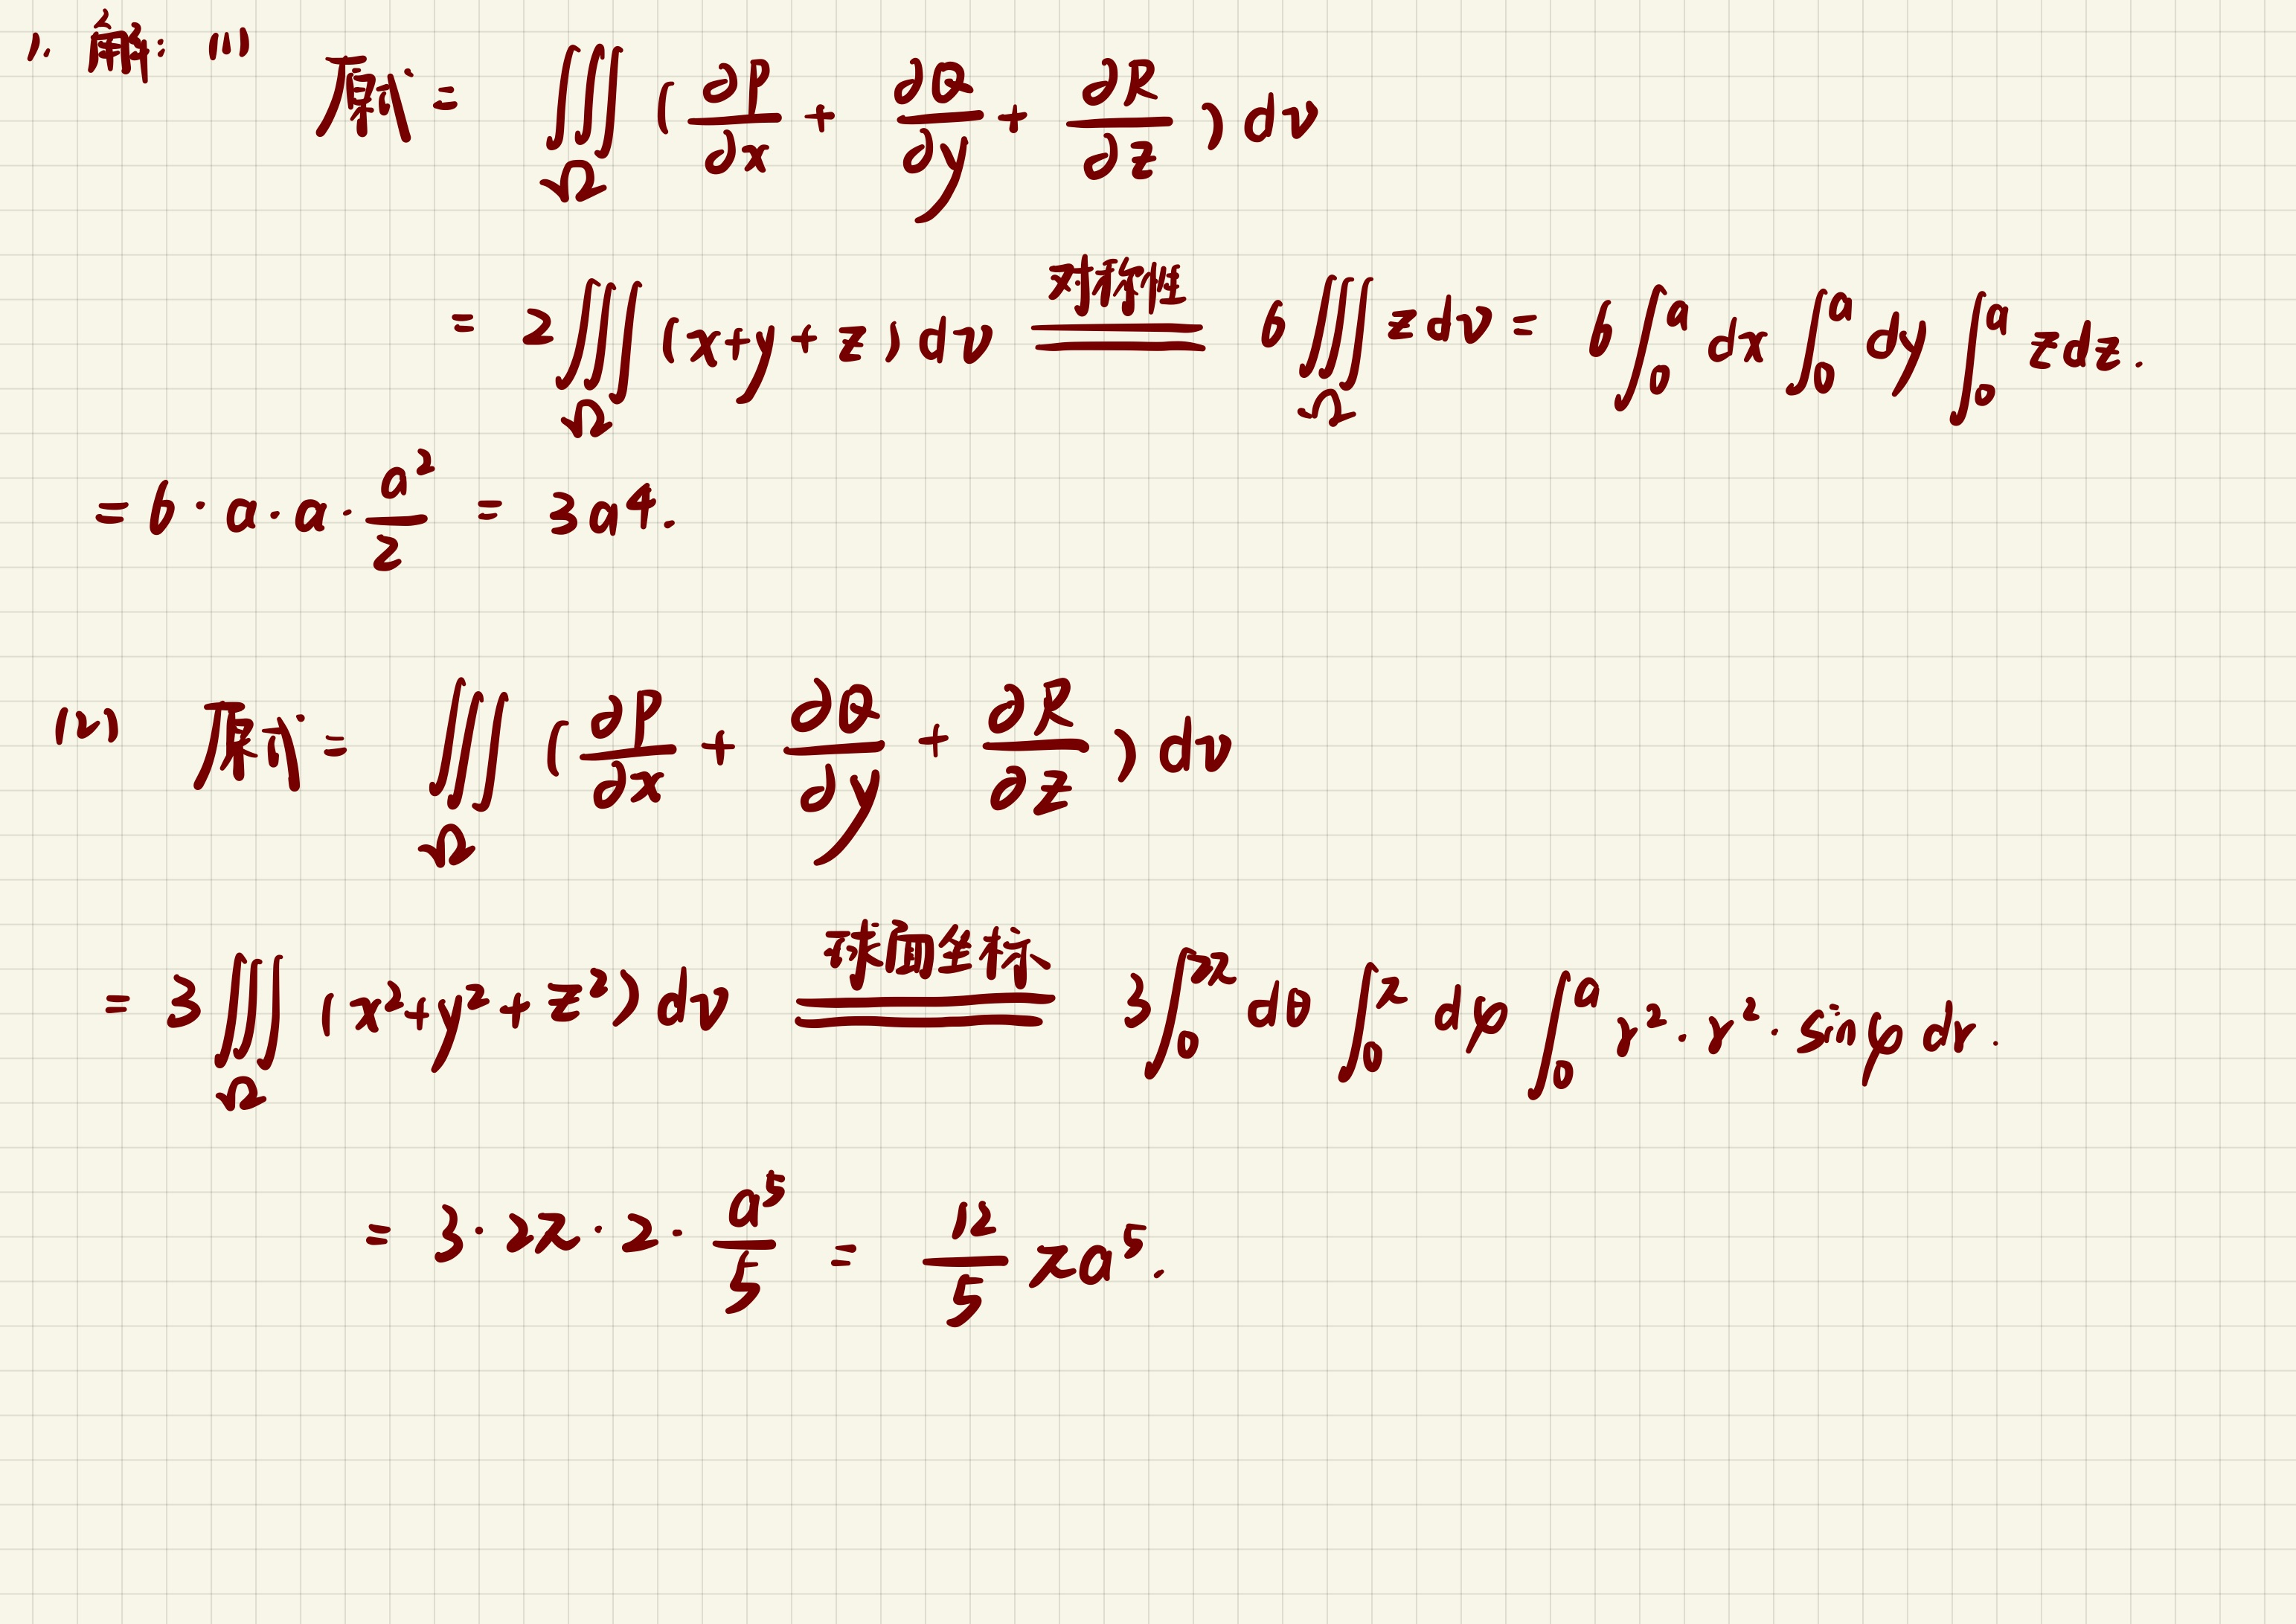 1. 解: (1)
原式= ∭_Ω (∂P/∂x + ∂Q/∂y + ∂R/∂z) dv
= 2∭_Ω (x+y+z) dv ==对称性== 6∭_Ω z dv = 6∫_0^a dx ∫_0^a dy ∫_0^a z dz.
= 6·a·a·a²/2 = 3a⁴.
(2) 原式= ∭_Ω (∂P/∂x + ∂Q/∂y + ∂R/∂z) dv
= 3∭_Ω (x²+y²+z²) dv ==球面坐标== 3∫_0^{2π} dθ ∫_0^π dφ ∫_0^a r²·r²·sinφ dr.
= 3·2π·2·a⁵/5 = 12/5 πa⁵.